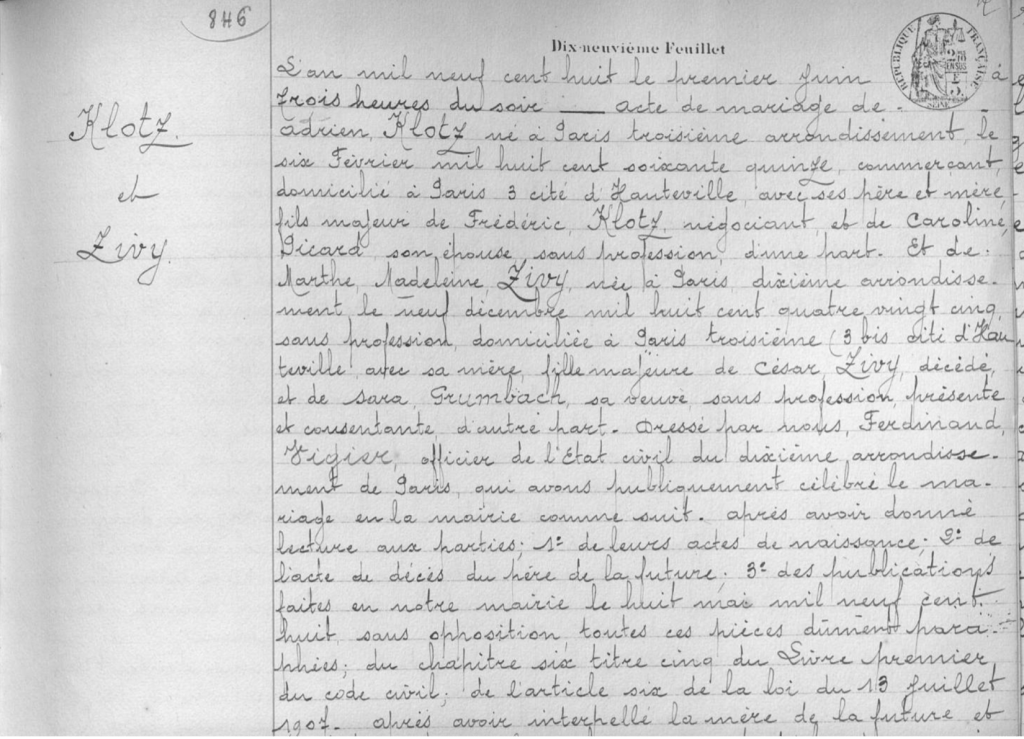 846
Dix-neuvième Feuillet
RÉPUBLIQUE FRANÇAISE
SEINE
Klotz
et
Zivy
L'an mil neuf cent huit le premier Juin à
trois heures du soir — acte de mariage de.
adrien, Klotz né à Paris troisième arrondissement, le
six Février mil huit cent soixante quinze, commerçant,
domicilié à Paris 3 cité d'Hauteville, avec ses père et mère,
fils majeur de Frédéric, Klotz, négociant, et de Caroline,
Picard, son épouse, sans profession, d'une part. Et de.
Marthe, Madeleine, Zivy, née à Paris, dixième arrondisse-
ment, le neuf décembre mil huit cent quatre vingt cinq,
sans profession, domiciliée à Paris troisième (3 bis cité d'Hau
teville avec sa mère, fille majeure de César, Zivy, décédé,
et de Sara, Grumbach, sa veuve, sans profession, présente
et consentante, d'autre part. Dressé par nous, Ferdinand,
Vigier, officier de l'Etat civil du dixième, arrondisse-
ment de Paris, qui avons publiquement célébré le ma-
riage en la mairie comme suit. après avoir donné
lecture aux parties; 1º de leurs actes de naissance; 2º de
l'acte de décès du père de la future; 3º des publications
faites en notre mairie le huit mai mil neuf cent.
huit, sans opposition toutes ces pièces dûment para-
phées; du chapitre six titre cinq du Livre premier,
du code civil; de l'article six de la loi du 13 Juillet
1907. après avoir interpellé la mère de la future et